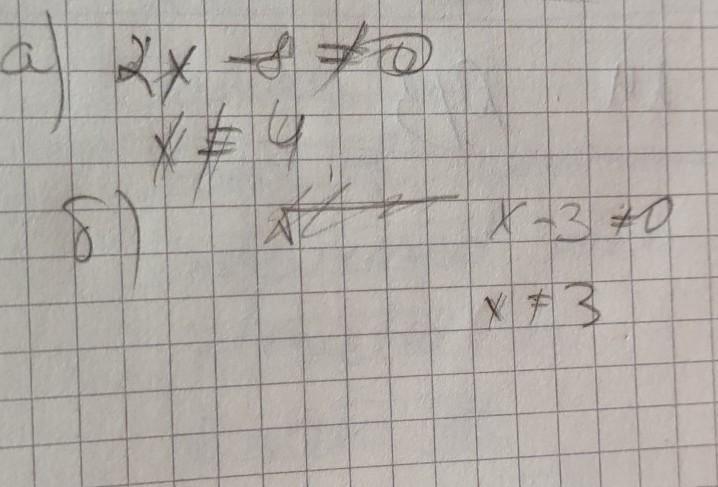 а) 2x - 8 ≠ 0
x ≠ 4
б) x - 3 ≠ 0
x ≠ 3